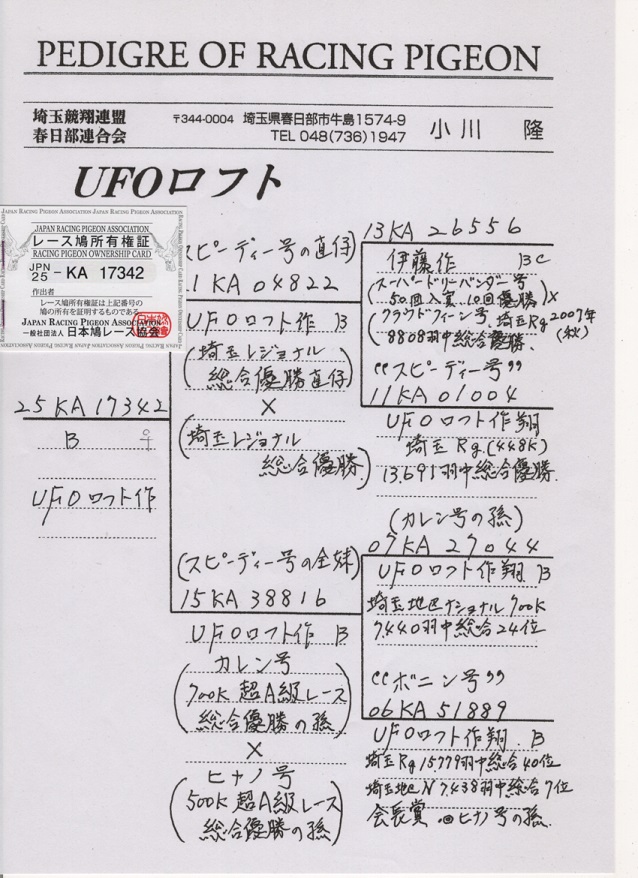 PEDIGRE OF RACING PIGEON
埼玉競翔連盟
春日部連合会
〒344-0004 埼玉県春日部市牛島1574-9
TEL 048(736)1947
小川 隆
UFOロフト
JAPAN RACING PIGEON ASSOCIATION
レース鳩所有権証
RACING PIGEON OWNERSHIP CARD
JPN
25 - KA 17342
作出者
レース鳩所有権証は上記番号の
鳩の所有を証明するものである
JAPAN RACING PIGEON ASSOCIATION
一般社団法人 日本鳩レース協会
25KA17342
B ♀
UFOロフト作
スピーディー号の直仔
1KA04822
UFOロフト作 B
(埼玉レジョナル
総合優勝直仔)
×
(埼玉レジョナル
総合優勝)
(スピーディー号の全妹)
15KA38816
UFOロフト作 B
カレン号
(700K超A級レース
総合優勝の孫)
×
ヒナノ号
(500K超A級レース
総合優勝の孫)
13KA26556
伊藤作 BC
(スーパードリーバンダー号
50回入賞10回優勝)×
(クラウドクィーン号、埼玉Rg2007年
(秋)
8808羽中総合優勝.
"スピーディー号"
11KA01004
UFOロフト作翔
埼玉Rg.(448K)
13.691羽中総合優勝.
(カレン号の孫)
07KA27044
UFOロフト作翔 B
埼玉地区ナショナル700K
7.440羽中総合24位
"ボニン号"
06KA51889
UFOロフト作翔 B
埼玉Rg15779羽中総合40位
埼玉地区N7.438羽中総合7位
会長賞 ヒナノ号の孫.